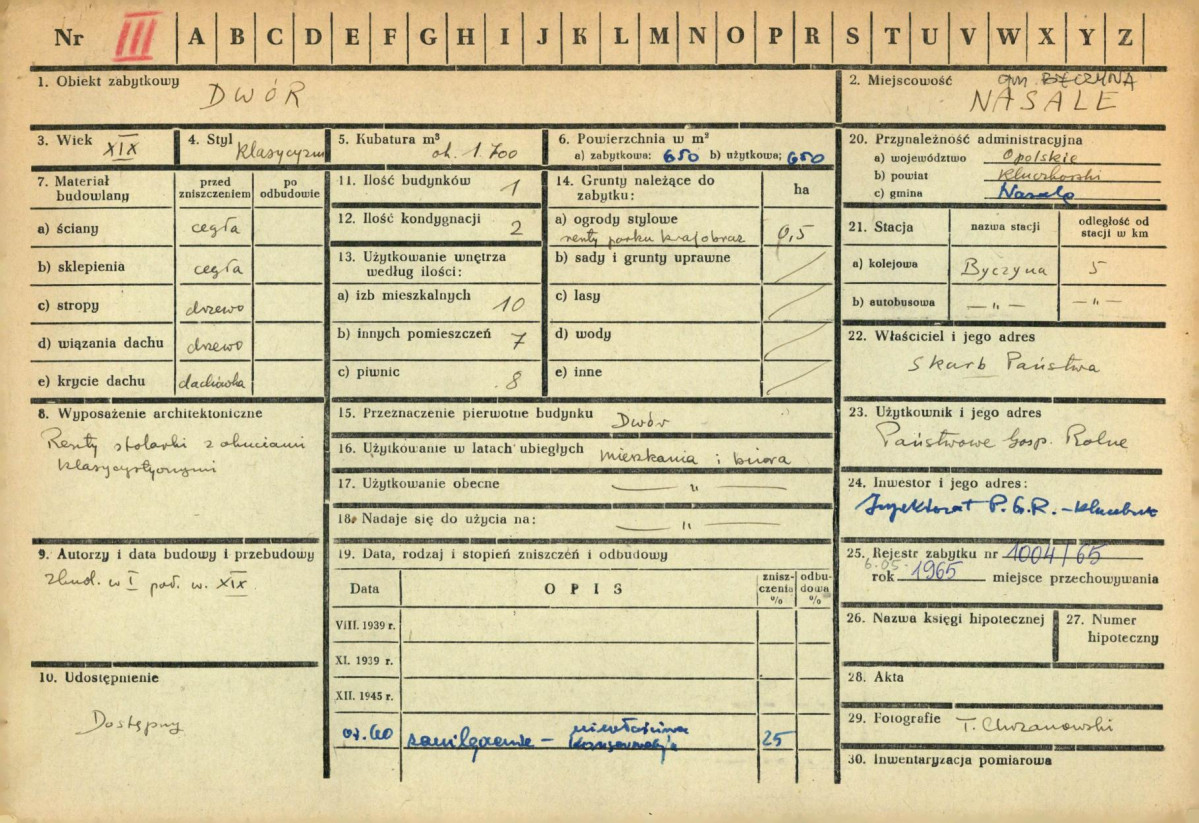 Nr III A B C D E F G H I J K L M N O P R S T U V W X Y Z
1. Obiekt zabytkowy
DWÓR
2. Miejscowość gm. BYCZYNA
NASALE
3. Wiek XIX
4. Styl klasycyzm
5. Kubatura m³
ok. 1.700
6. Powierzchnia w m²
a) zabytkowa: 650 b) użytkowa; 650
7. Materiał budowlany
przed zniszczeniem
po odbudowie
a) ściany cegła
b) sklepienia cegła
c) stropy drzewo
d) wiązania dachu drzewo
e) krycie dachu dachówka
8. Wyposażenie architektoniczne
Reszty stolarki z okuciami
klasycystycznymi
9. Autorzy i data budowy i przebudowy
zbud. w I poł. w. XIX.
10. Udostępnienie
Dostępny
11. Ilość budynków 1
12. Ilość kondygnacji 2
13. Użytkowanie wnętrza
według ilości:
a) izb mieszkalnych 10
b) innych pomieszczeń 7
c) piwnic 8
14. Grunty należące do
zabytku:
ha
a) ogrody stylowe
reszty parku krajobraz 0,5
b) sady i grunty uprawne
c) lasy
d) wody
e) inne
15. Przeznaczenie pierwotne budynku Dwór
16. Użytkowanie w latach ubiegłych mieszkania i biura
17. Użytkowanie obecne — " —
18. Nadaje się do użycia na: — " —
19. Data, rodzaj i stopień zniszczeń i odbudowy
Data
O P I S
znisz-
czenia
%
odbu-
dowa
%
VIII. 1939 r.
XI. 1939 r.
XII. 1945 r.
60 niewłaściwa
konserwacja 25
20. Przynależność administracyjna
a) województwo Opolskie
b) powiat kluczborski
c) gmina Nasale
21. Stacja
nazwa stacji
odległość od
stacji w km
a) kolejowa Byczyna 5
b) autobusowa — " — — " —
22. Właściciel i jego adres
Skarb Państwa
23. Użytkownik i jego adres
Państwowe Gosp. Rolne
24. Inwestor i jego adres:
Inspektorat P.G.R. - Kluczbork
25. Rejestr zabytku nr 1004/65
6.05.
rok 1965 miejsce przechowywania
26. Nazwa księgi hipotecznej
27. Numer
hipoteczny
28. Akta
29. Fotografie T. Chrzanowski
30. Inwentaryzacja pomiarowa